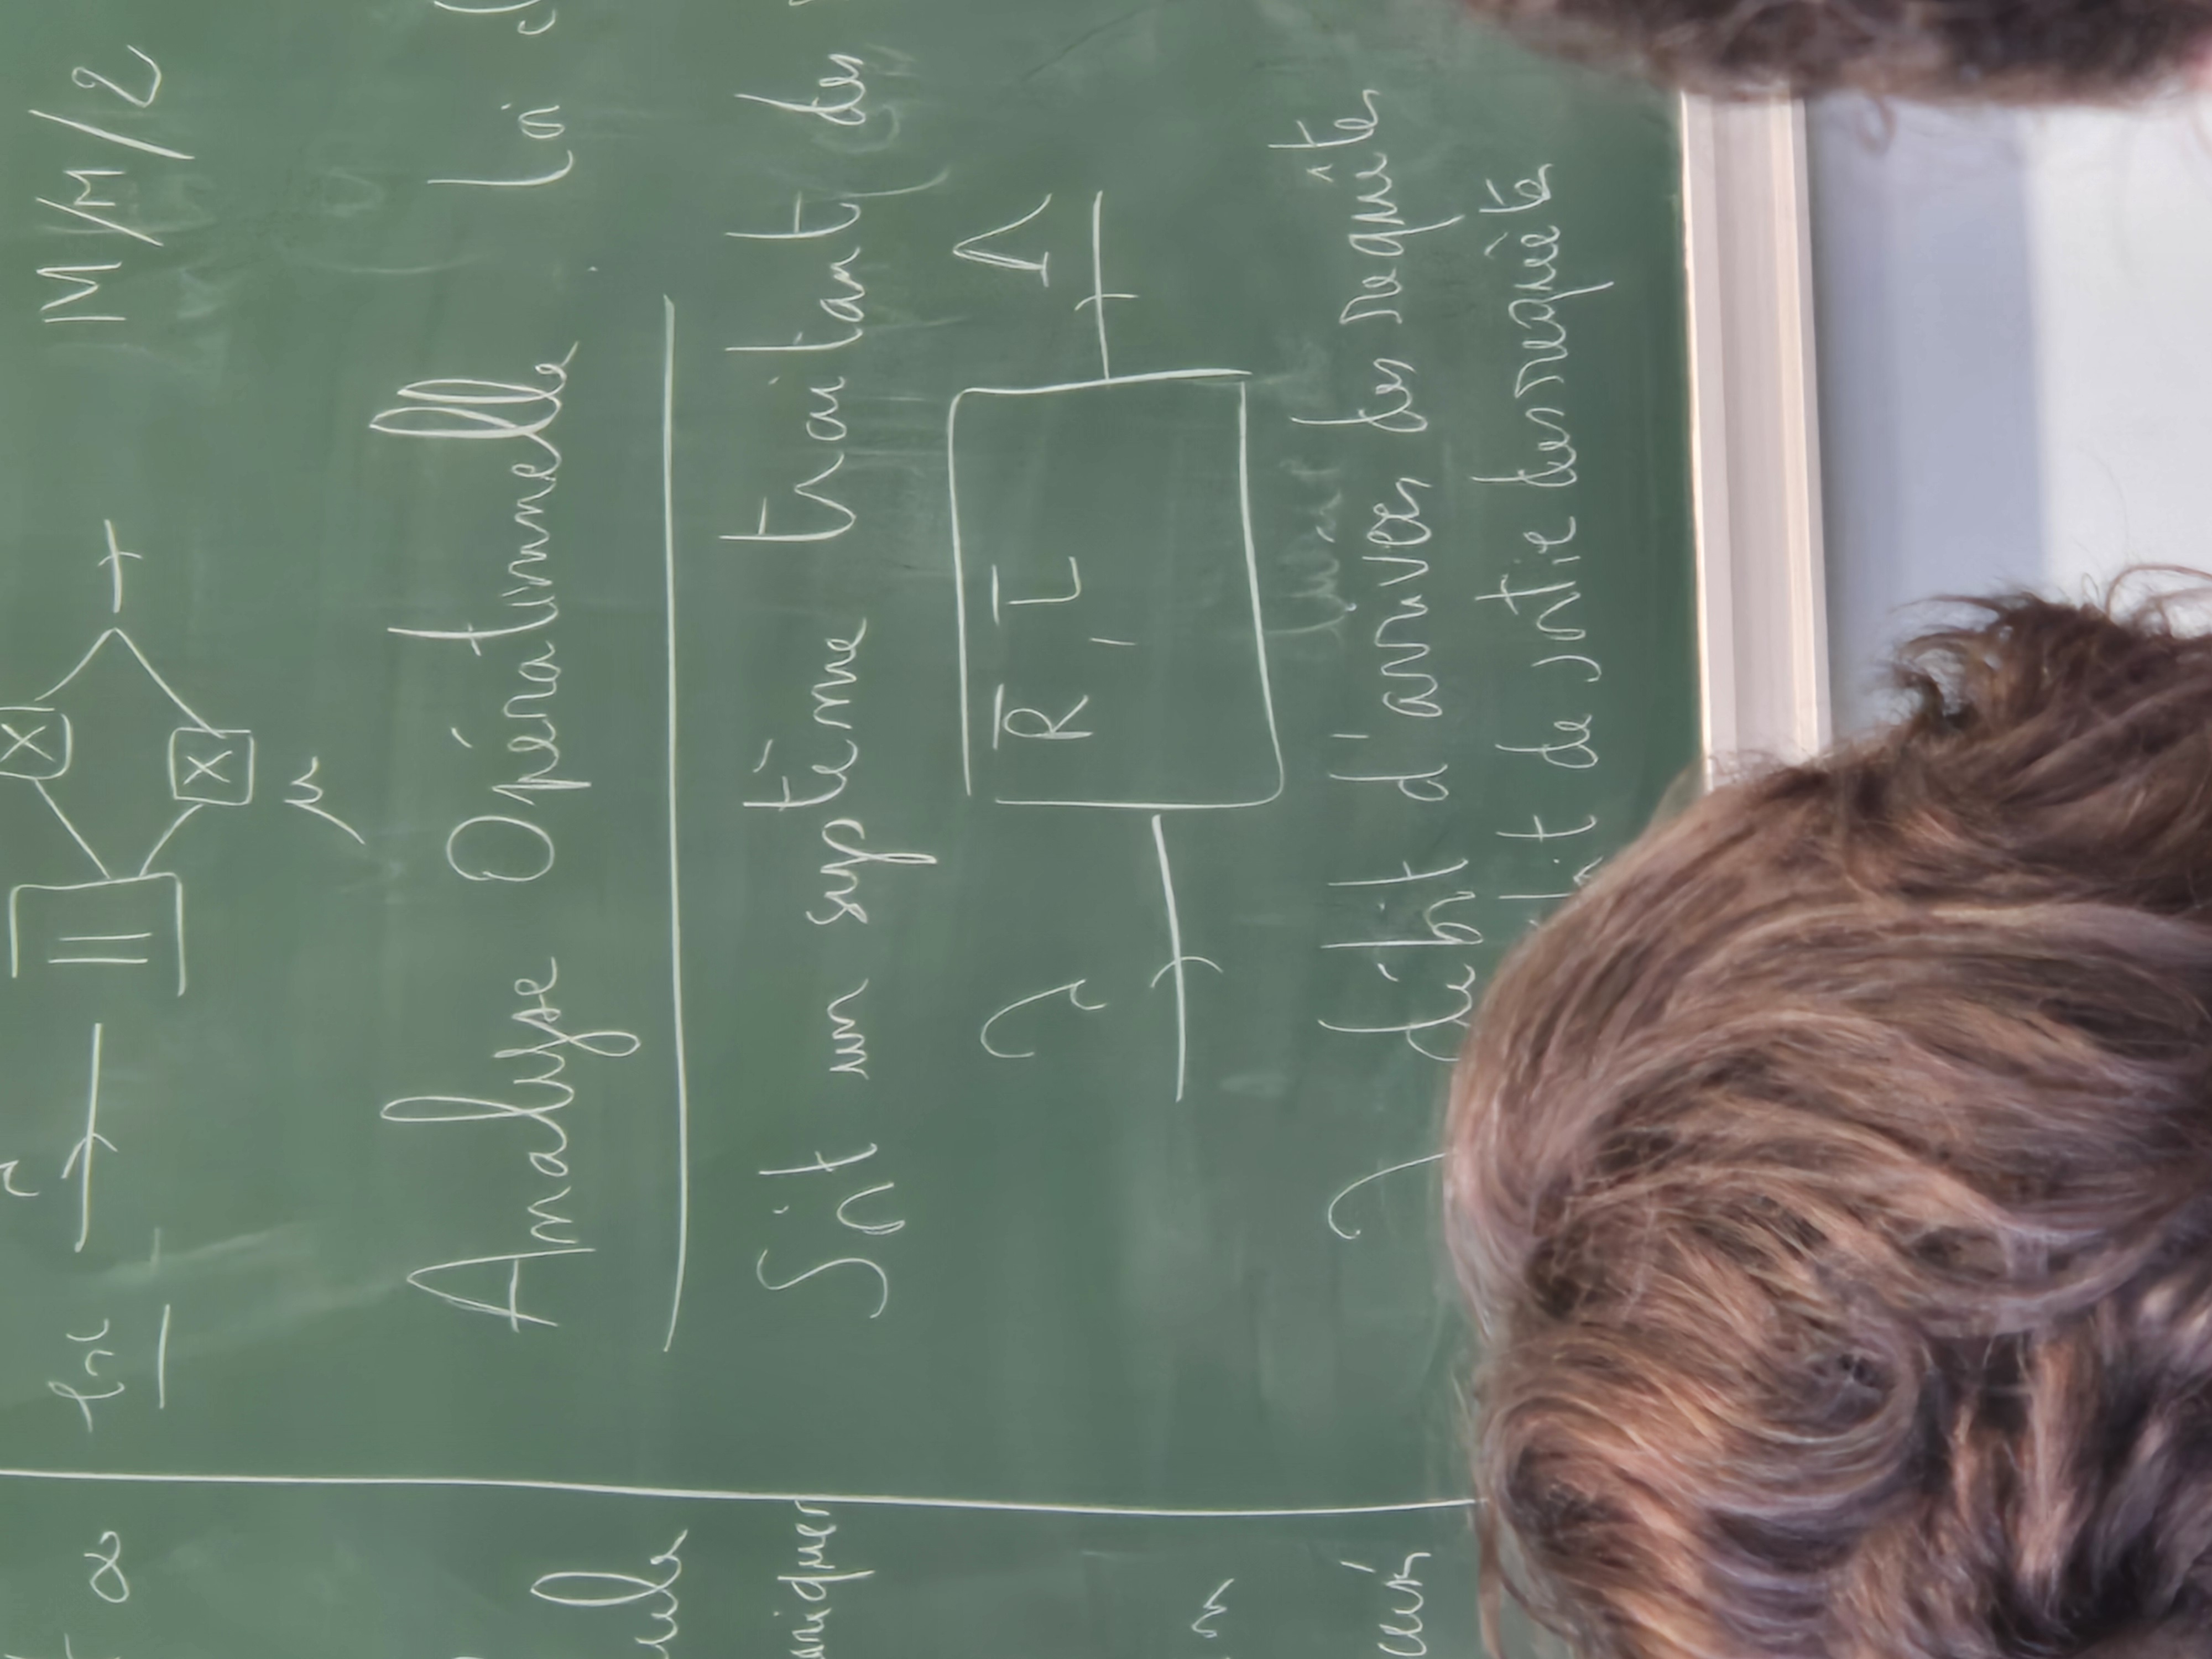 ∝
Ex λ X M/M/2
X
μ
Analyse Opérationnelle. Loi d
Soit un système traitant des
λ R̅, L̅ Λ
λ débit d'arrivées des requêtes
de sortie des requêtes